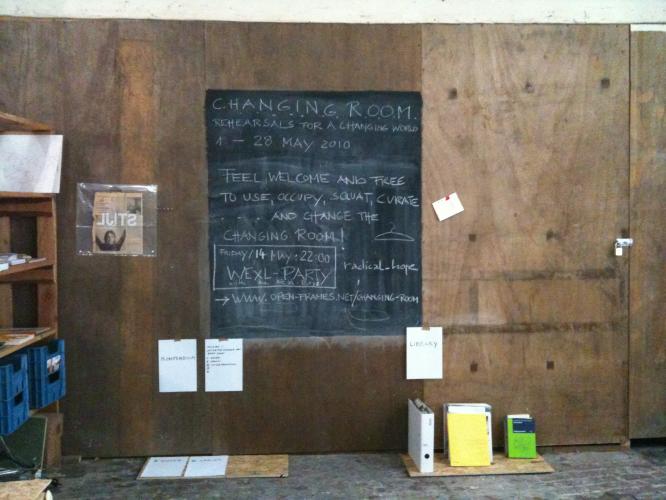 CHANGING ROOM.
REHEARSALS FOR A CHANGING WORLD
1 - 28 MAY 2010
FEEL WELCOME AND FREE
TO USE, OCCUPY, SQUAT, CURATE
.... AND CHANGE THE
CHANGING ROOM!
FRIDAY/14 MAY: 22:00
WEXL-PARTY
radical_hope
→ WWW.OPEN-FRAMES.NET/CHANGING-ROOM
STIJL
LIBRARY